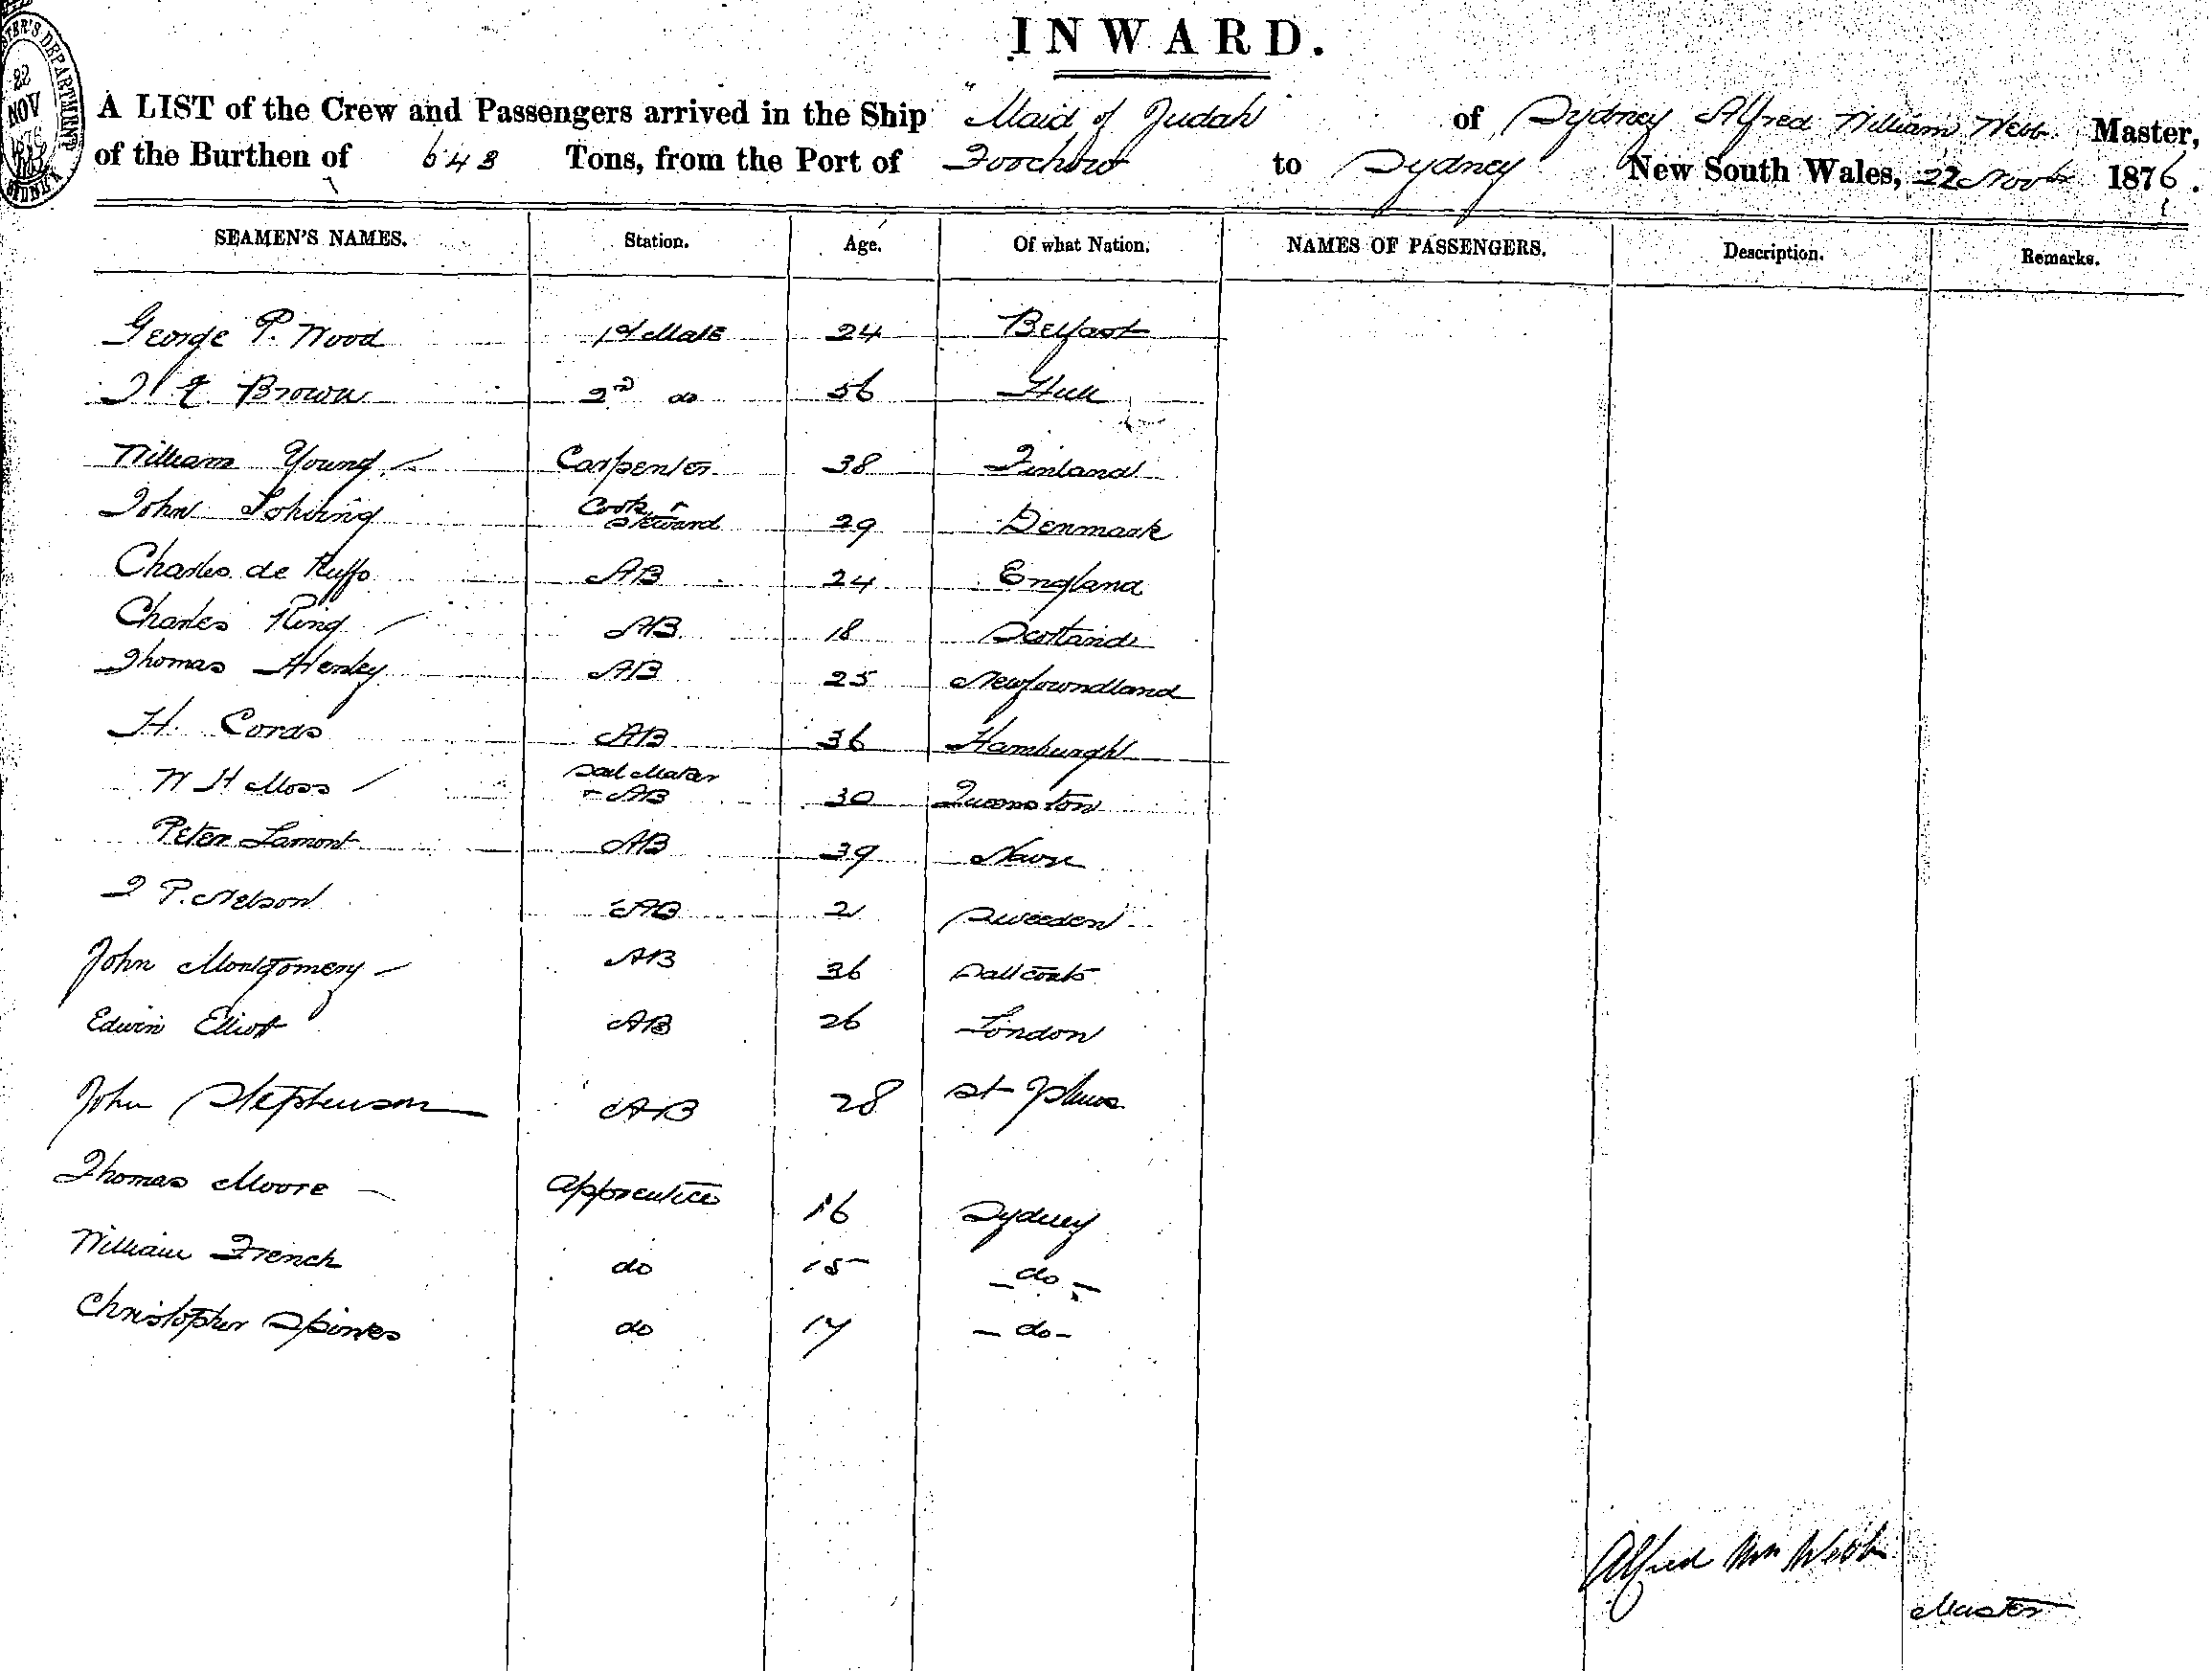 INWARD.
A LIST of the Crew and Passengers arrived in the Ship "Maid of Judah of Sydney Alfred William Webb Master,
of the Burthen of 648 Tons, from the Port of Foochow to Sydney New South Wales, 22 Novbr 1876.
22
NOV
SEAMEN'S NAMES. Station. Age. Of what Nation. NAMES OF PASSENGERS. Description. Remarks.
George P. Wood 1st Mate 24 Belfast
Brown 2nd do 56 Hull
William Young Carpenter 38 Finland
John Cook & Steward 29 Denmark
Charles de Ruffo AB 24 England
Charles King AB 18 Scotland
Thomas Henley AB 25 Newfoundland
H. Cords AB 36 Hamburgh
W H Moss Sail Maker & AB 30 Queenston
Peter Lamont AB 39 
P. Nelson AB 21 Sweeden
John Montgomery AB 36 Saltcoats
Edwin Elliot AB 26 London
John Stephenson AB 28 St Johns
Thomas Moore Apprentice 16 Sydney
William French do 15 - do -
Christopher Spinks do 17 - do -
Alfred Wm Webb
Master